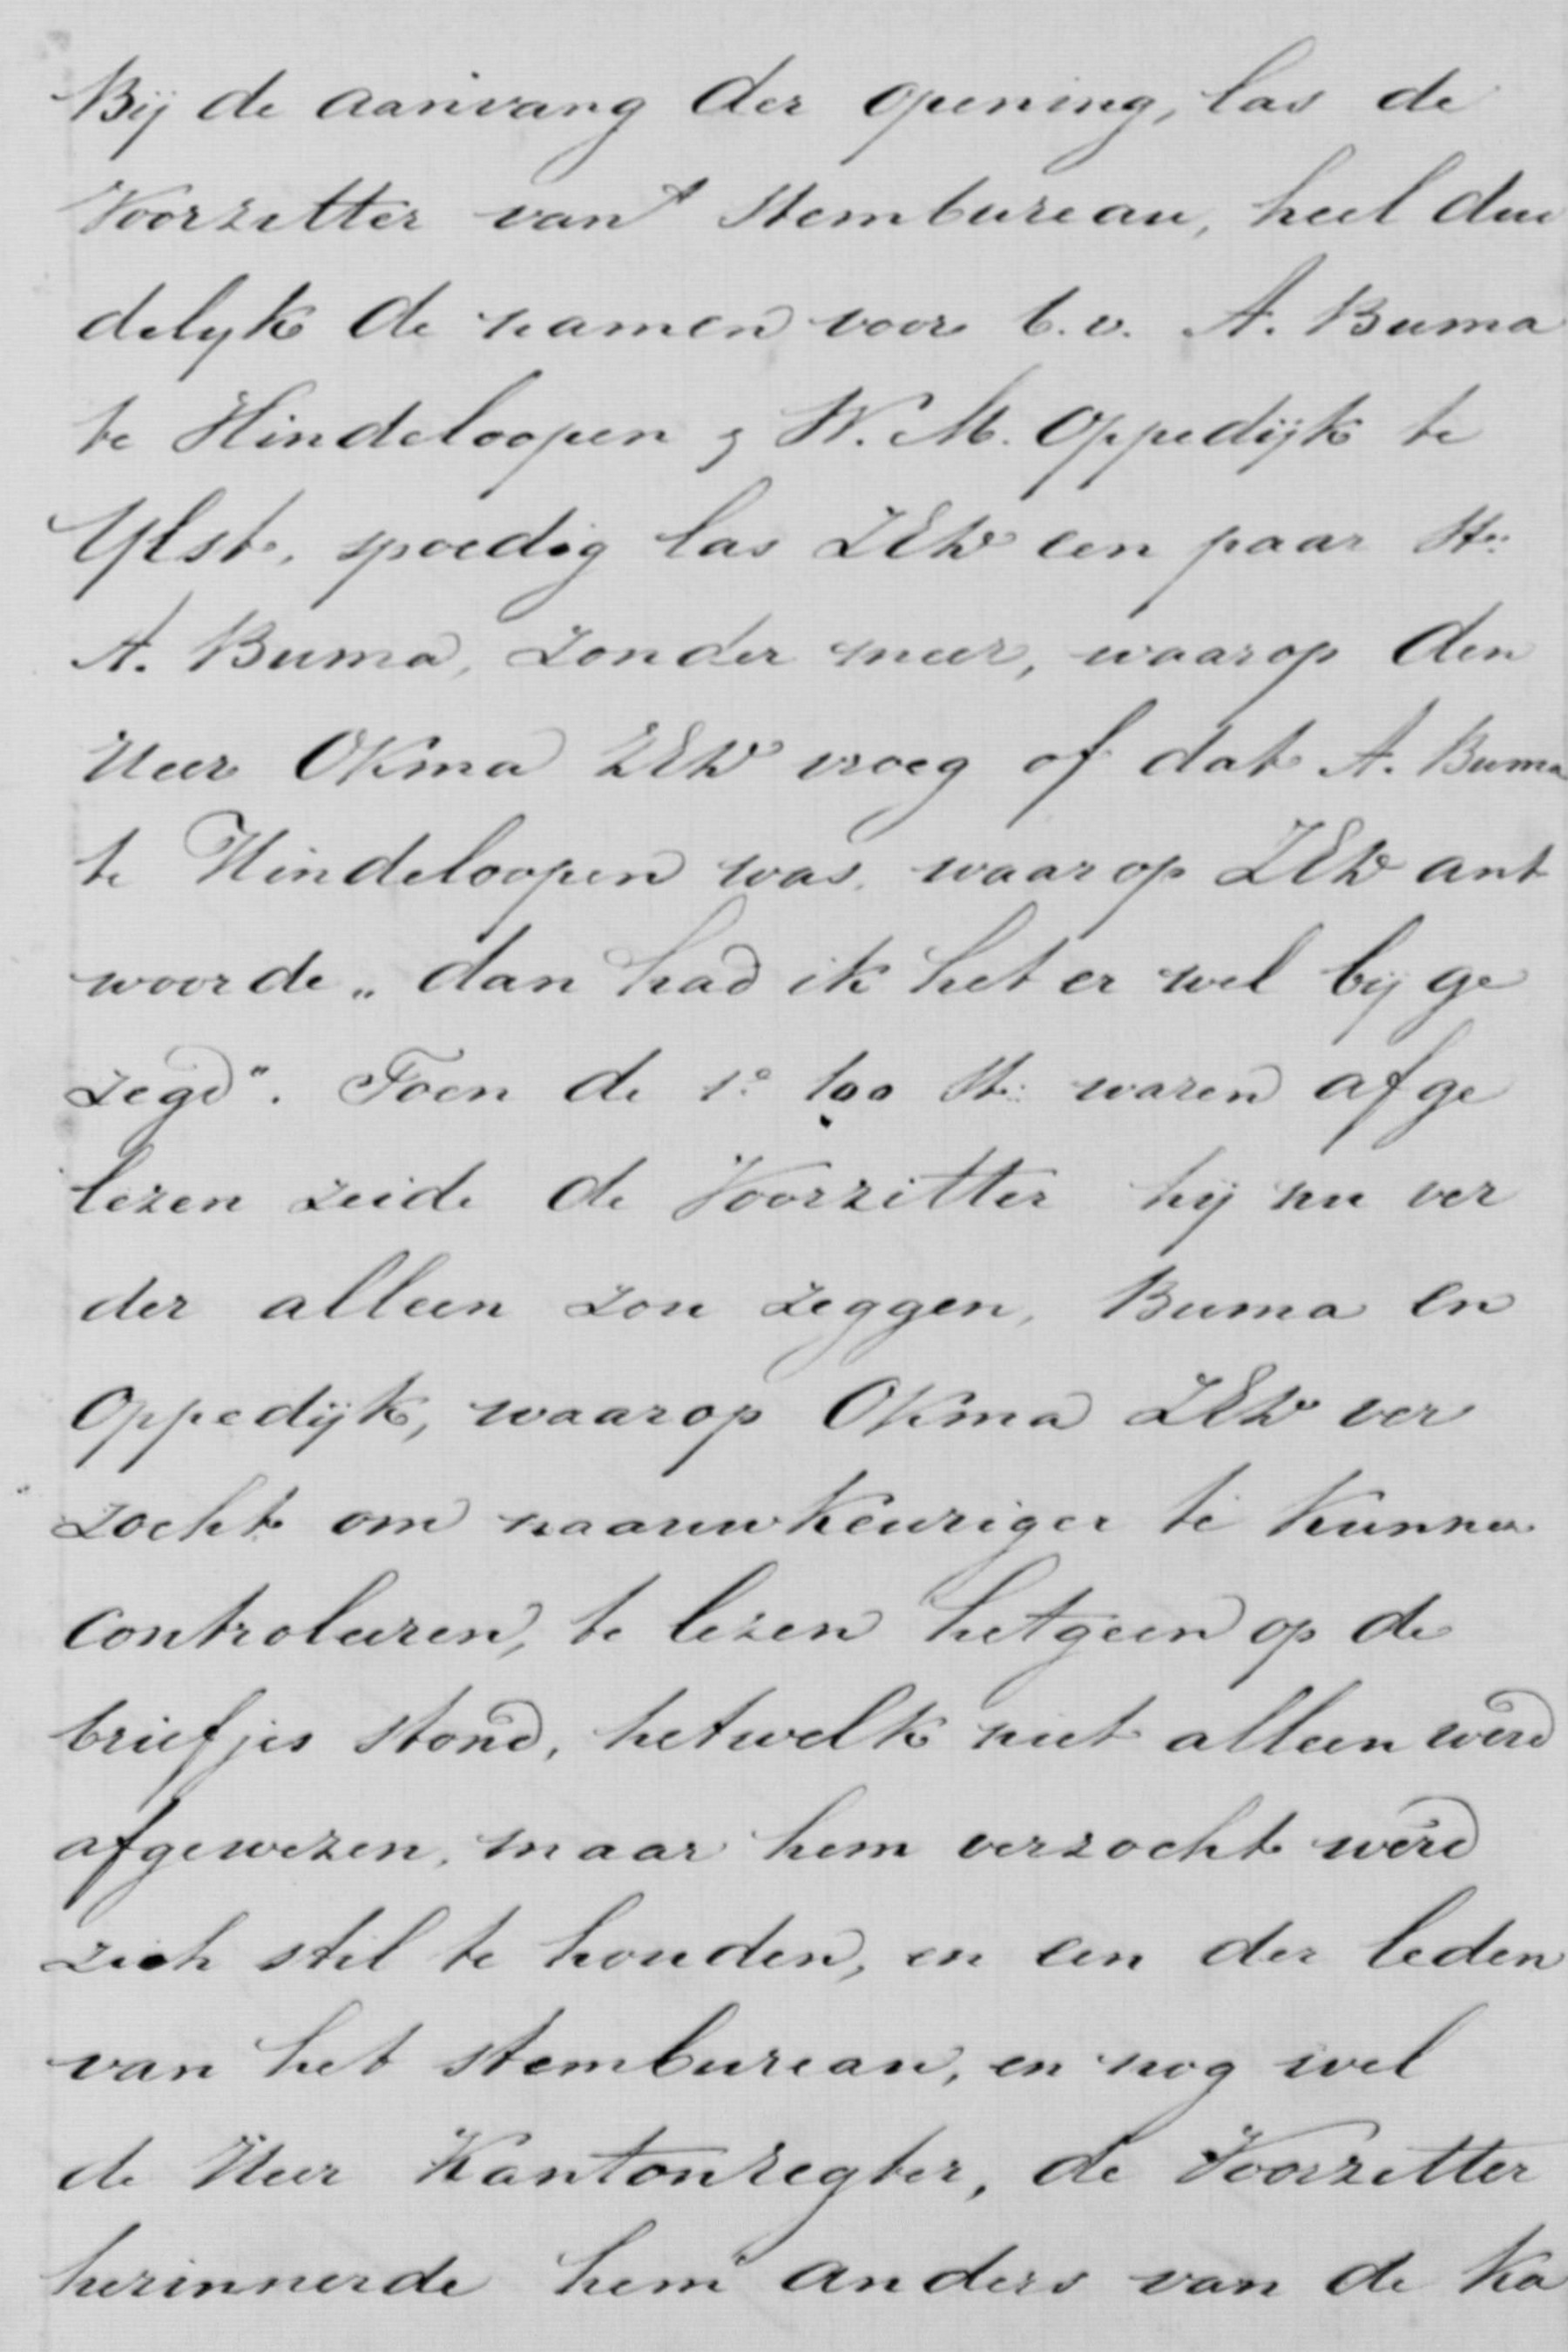 Bij de aanvang der opening, las de
Voorzitter van 't Stembureau, heel dui
delijk de namen voor b.v. A. Buma
te Hindeloopen & W. M. Oppedijk te
Ylst, spoedig las ZEW een paar St:
A. Buma, zonder meer, waarop den
Heer Okma ZEW vroeg of dat A. Buma
te Hindeloopen was, waarop ZEW ant
woorde „dan had ik het er wel bij ge
zegd". Toen de 1e 100 St: waren afge
lezen zeide de Voorzitter hij nu ver
der alleen zou zeggen, Buma en
Oppedijk, waarop Okma ZEW ver
zocht om naauwkeuriger te kunnen
controleeren, te lezen hetgeen op de
briefjes stond, hetwelk niet alleen werd
afgewezen, maar hem verzocht werd
zich stil te houden, en een der leden
van het stembureau, en nog wel
de Heer Kantonregter, de Voorzitter
herinnerde hem anders van de ka